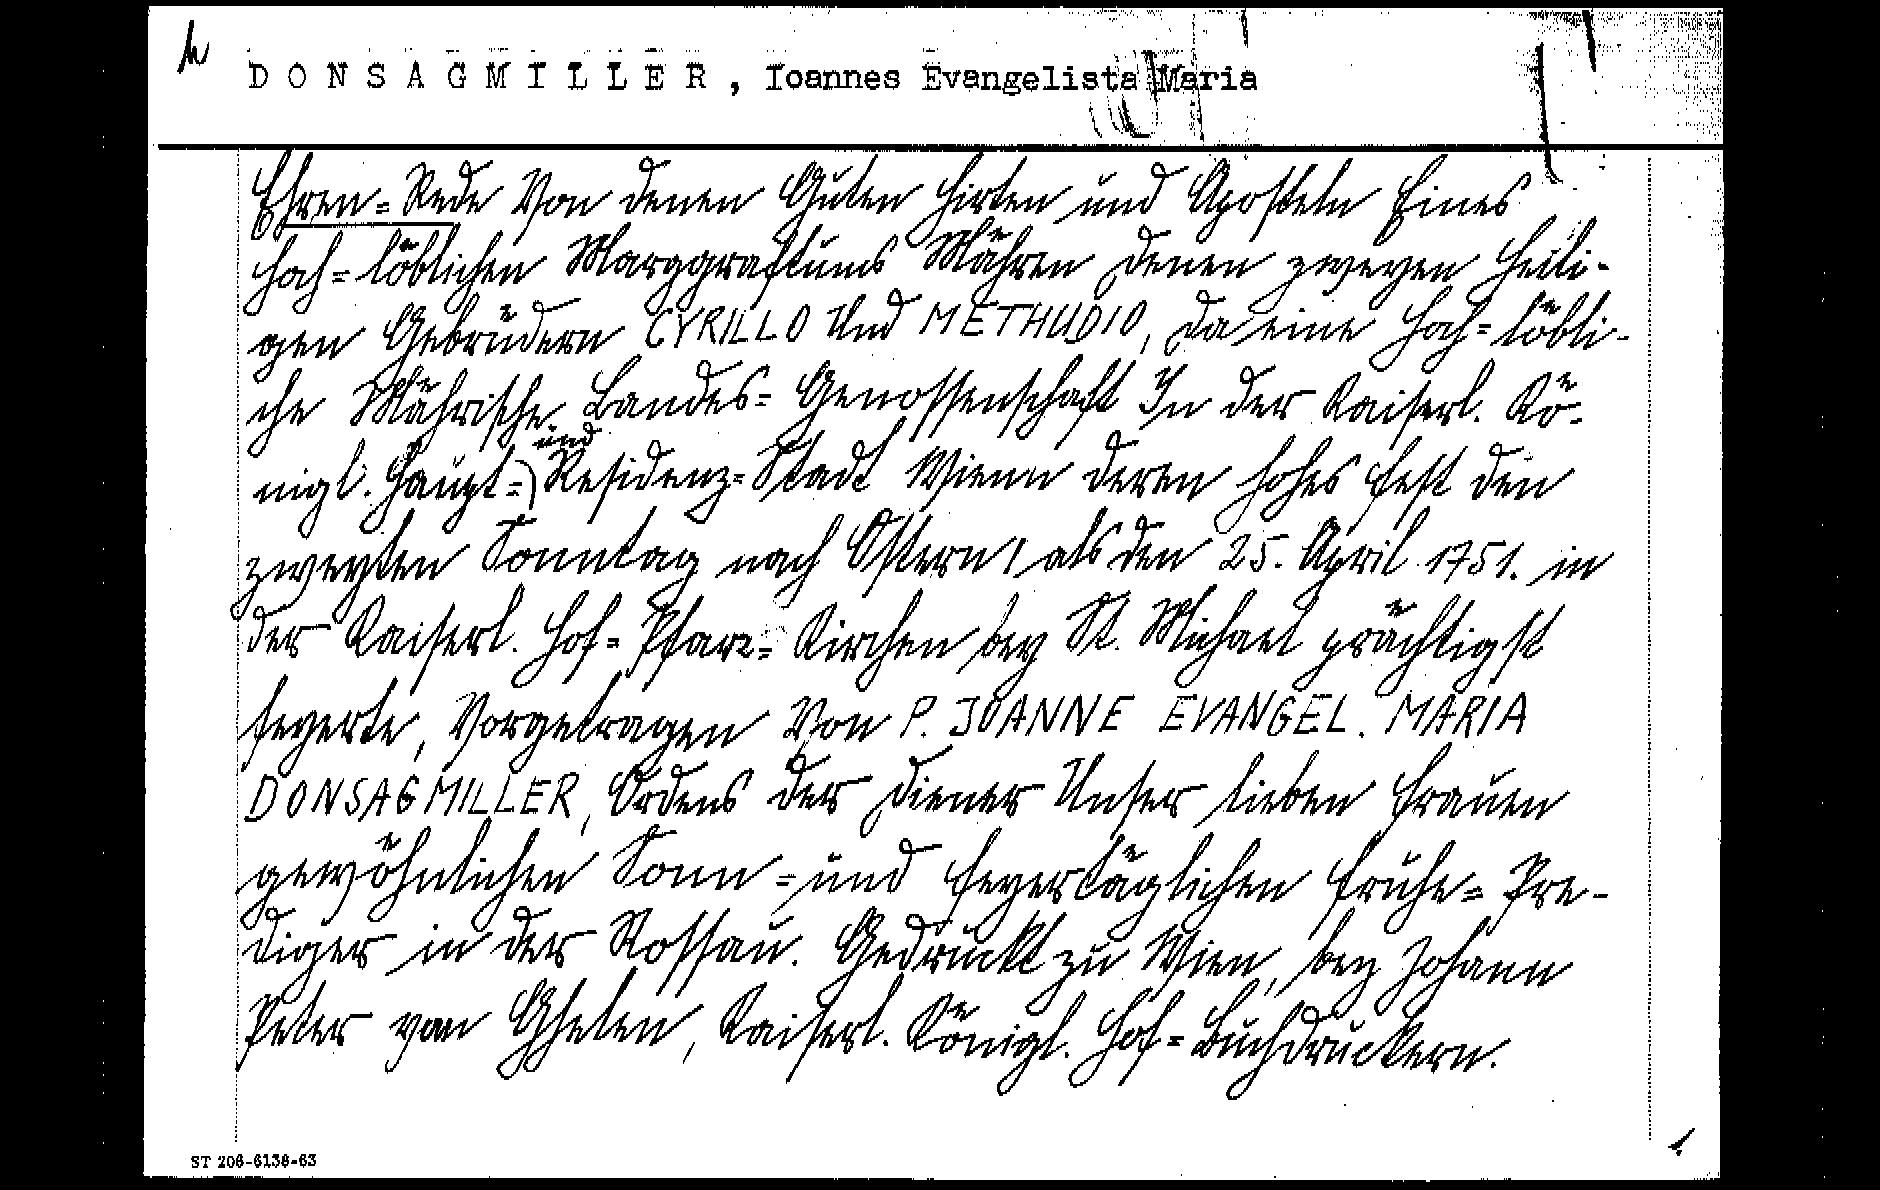 h
DONSAGMILLER, Ioannes Evangelista Maria
Ehren=Rede Von denen Guten Hirten und Aposteln Eines
Hoch=löblichen Marggraftums Mähren denen zweyen Heili-
gen Gebrüdern CYRILLO Und METHUDIO, da eine Hoch=löbli-
che Mährische Landes=Genossenschaft In der Kaiserl. Kö-
nigl. Haupt= und Residenz=Stadt Wienn deren hohes Fest den
zweyten Sonntag nach Ostern, als den 25. April 1751. in
der Kaiserl. Hof=Pfarr=Kirchen bey St. Michael prächtigst
feyerte, Vorgetragen Von P. JOANNE EVANGEL. MARIA
DONSAGMILLER, Ordens der Diener Unser lieben Frauen
gewöhnlichen Sonn=und feyertäglichen Fruhe=Pre-
diger in der Rossau. Gedruckt zu Wien, bey Johann
Peter van Ghelen, Kaiserl. Königl. Hof=Buchdruckern.
ST 206-6138-63